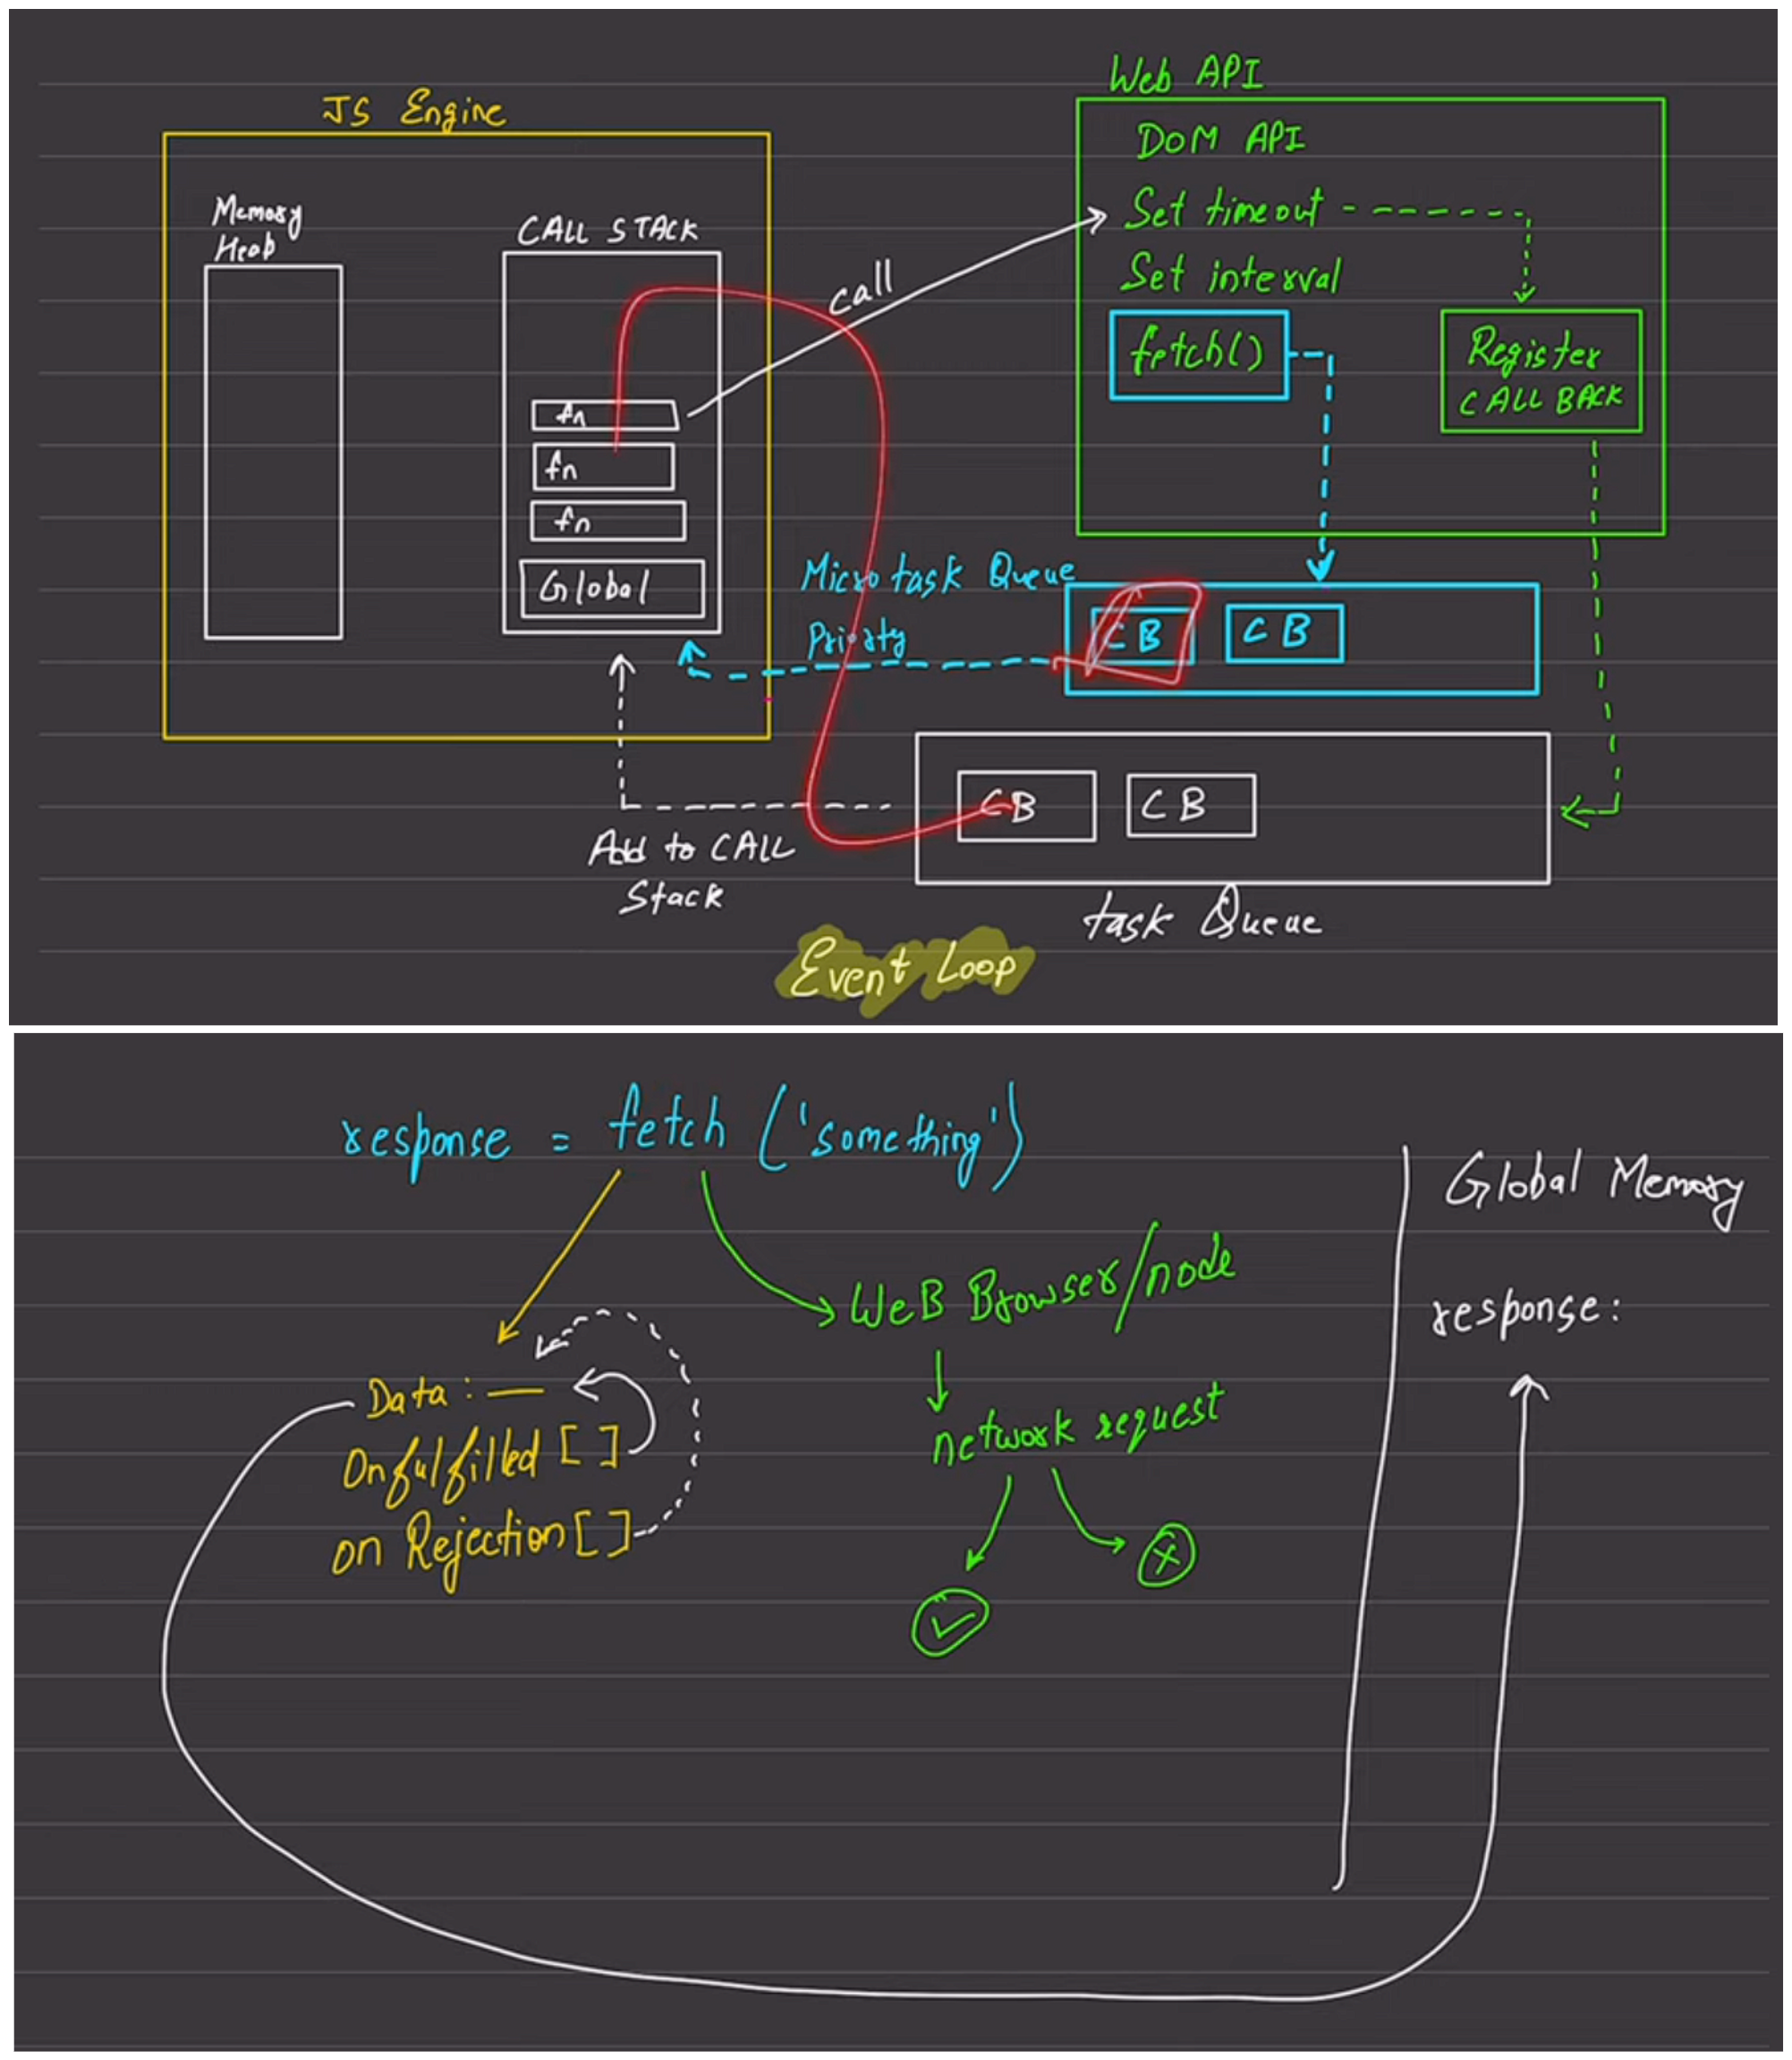 JS Engine
Memory
Heap
CALL STACK
fn
fn
fn
Global
call
Web API
DOM API
Set timeout
Set interval
fetch()
Register
CALL BACK
Micro task Queue
Priority
CB
CB
CB
CB
Add to CALL
Stack
task Queue
Event Loop
response = fetch ('something')
Global Memory
response:
Web Browser/node
network request
Data : —
Onfulfilled [ ]
on Rejection [ ]